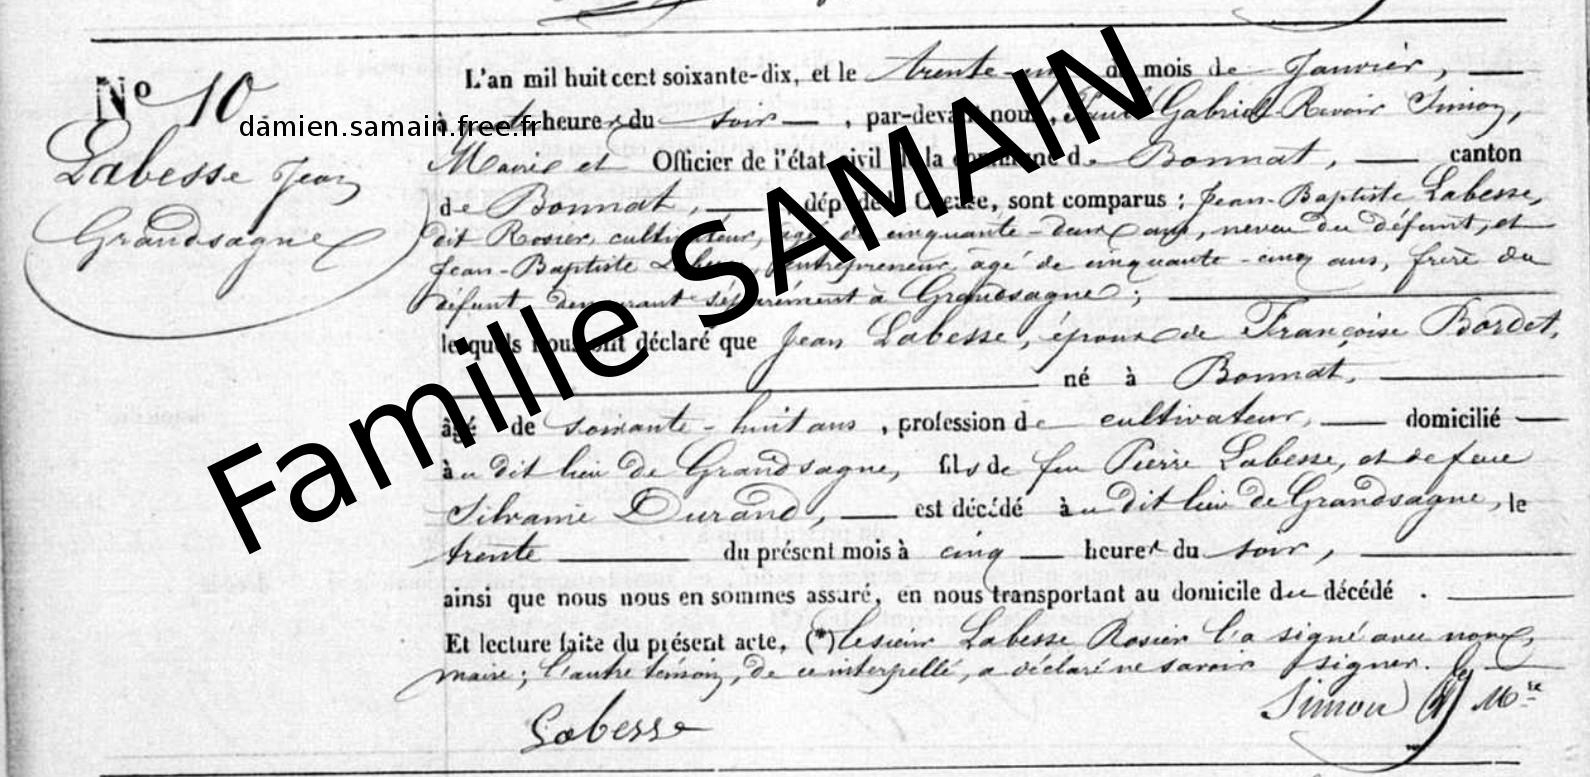 N° 10
Labesse Jean
Grandsagne
damien.samain.free.fr
Famille SAMAIN
L'an mil huit cent soixante-dix, et le trente-un du mois de Janvier,
à heures du soir, par-devant nous, Gabriel Revoir Simon,
Maire et Officier de l'état civil de la commune de Bonnat, canton
de Bonnat, dép. de la Creuse, sont comparus : Jean-Baptiste Labesse,
dit Rosier, cultivateur, âgé de cinquante-deux ans, neveu du défunt, et
Jean-Baptiste Labesse, entrepreneur âgé de cinquante-cinq ans, frère du
défunt demeurant séparément à Grandsagne ;
lesquels nous ont déclaré que Jean Labesse, époux de Françoise Bordet,
né à Bonnat,
âgé de soixante-huit ans, profession de cultivateur, domicilié
au dit lieu de Grandsagne, fils de feu Pierre Labesse, et de feue
Silvanie Durand, est décédé au dit lieu de Grandsagne, le
trente du présent mois à cinq heures du soir,
ainsi que nous nous en sommes assuré, en nous transportant au domicile du décédé.
Et lecture faite du présent acte, (*) le sieur Labesse Rosier l'a signé avec nous,
maire ; l'autre témoin, de ce interpellé, a déclaré ne savoir signer.
Labesse
Simon